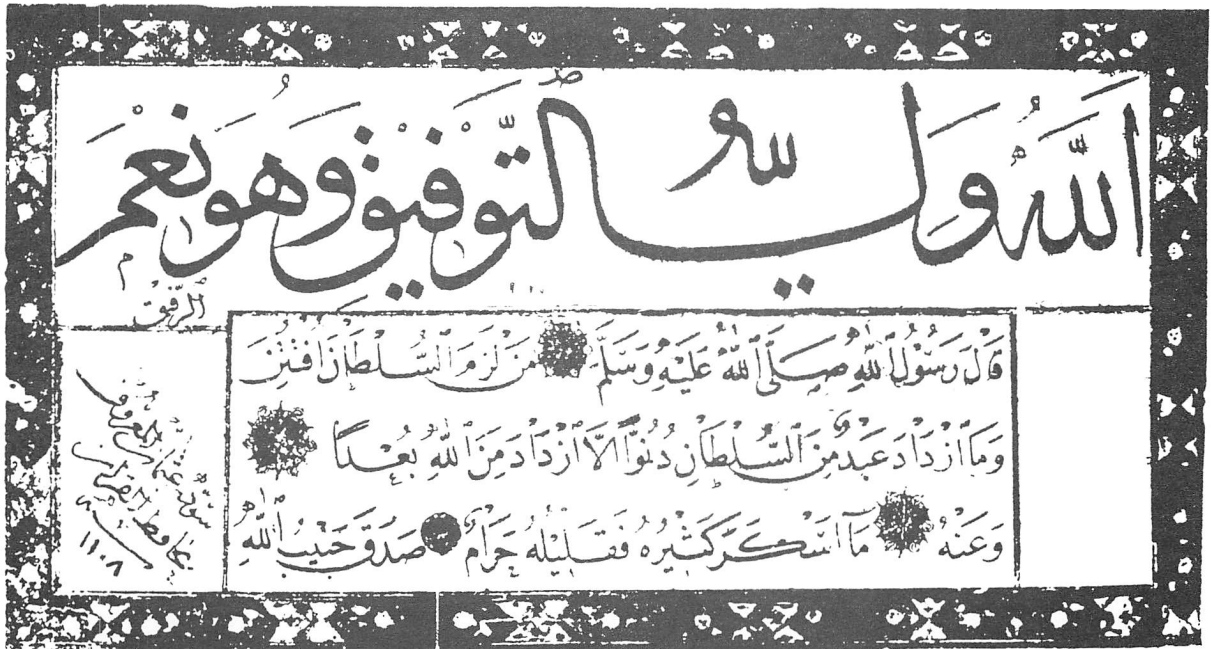 اَللّٰهُ وَلِيُّ التَّوْفِيقِ وَهُوَ نِعْمَ
الرَّفِيقُ
قَالَ رَسُولُ اللّٰهِ صَلَّى اللّٰهُ عَلَيْهِ وَسَلَّمَ مَنْ لَزِمَ السُّلْطَانَ افْتُتِنَ
وَمَا ازْدَادَ عَبْدٌ مِنَ السُّلْطَانِ دُنُوًّا اِلَّا ازْدَادَ مِنَ اللّٰهِ بُعْدًا
وَعَنْهُ مَا اَسْكَرَ كَثِيرُهُ فَقَلِيلُهُ حَرَامٌ صَدَقَ حَبِيبُ اللّٰهِ
سوده عثمان المعروف
بحافظ القرآن
١١٠٨